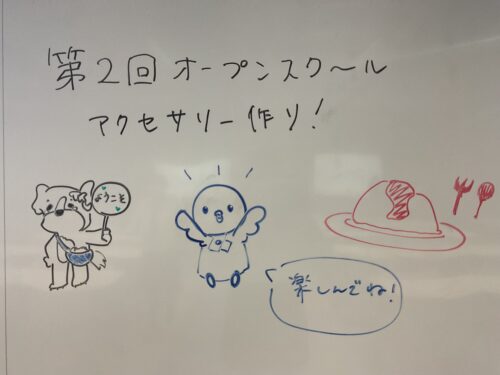 第2回オープンスクール
アクセサリー作り!
ようこそ
楽しんでね!